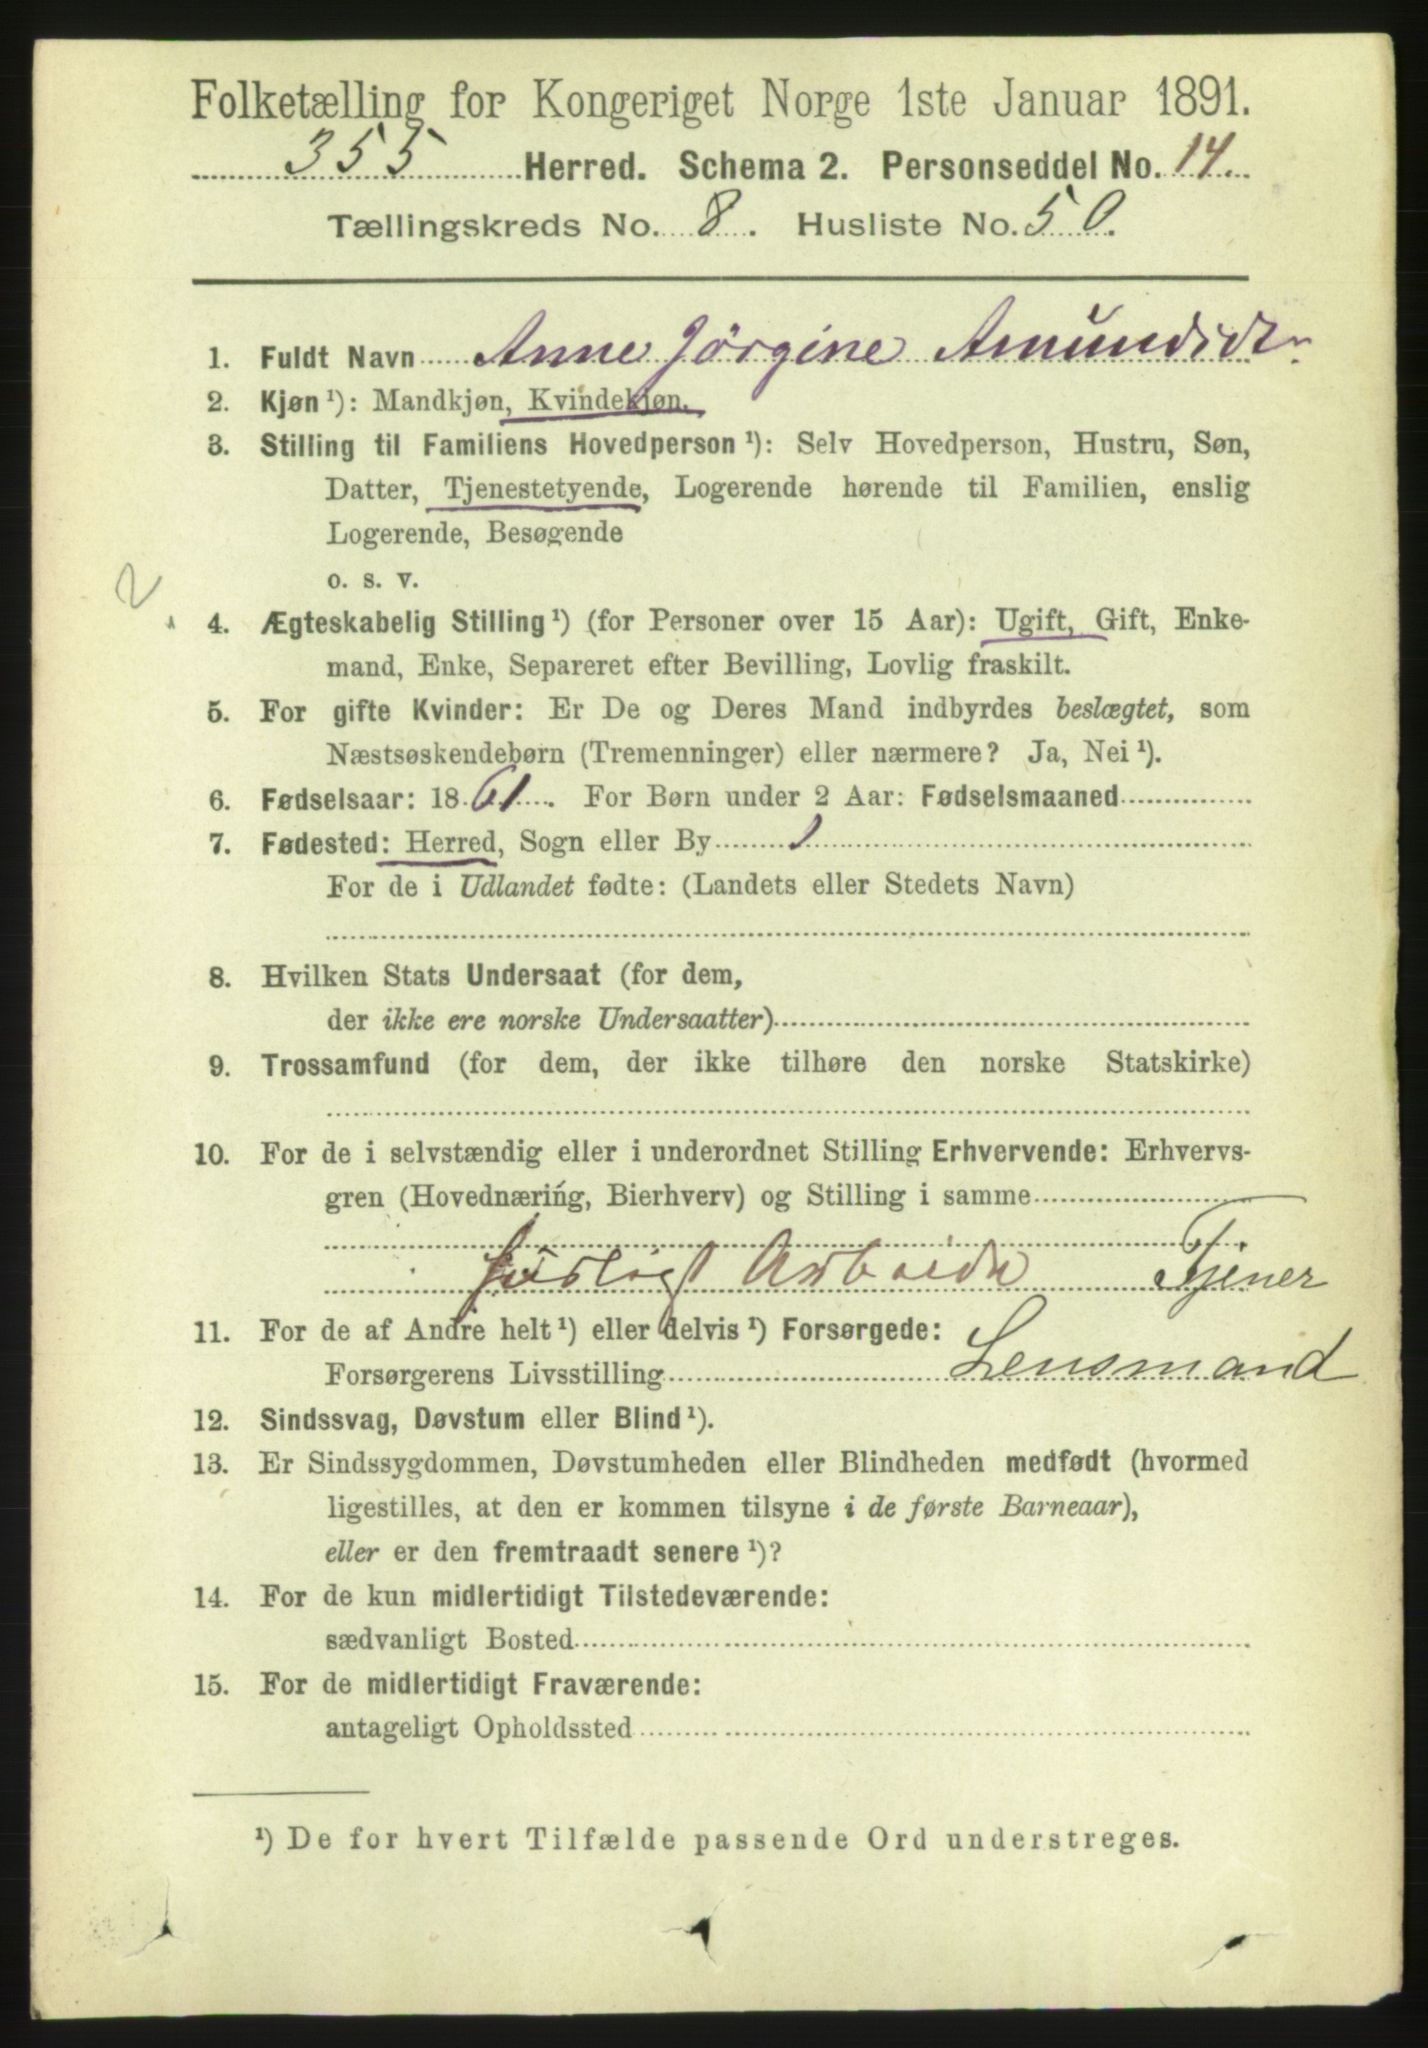 Folketælling for Kongeriget Norge 1ste Januar 1891.
355 Herred. Schema 2. Personseddel No. 14.
Tællingskreds No. 8. Husliste No. 50.
1. Fuldt Navn Anne Jörgine Amundsdtr
2. Kjøn ¹): Mandkjøn, Kvindekjøn.
3. Stilling til Familiens Hovedperson ¹): Selv Hovedperson, Hustru, Søn,
Datter, Tjenestetyende, Logerende hørende til Familien, enslig
Logerende, Besøgende
o. s. v.
2
4. Ægteskabelig Stilling ¹) (for Personer over 15 Aar): Ugift, Gift, Enke-
mand, Enke, Separeret efter Bevilling, Lovlig fraskilt.
5. For gifte Kvinder: Er De og Deres Mand indbyrdes beslægtet, som
Næstsøskendebørn (Tremenninger) eller nærmere? Ja, Nei ¹).
6. Fødselsaar: 1861. For Børn under 2 Aar: Fødselsmaaned
7. Fødested: Herred, Sogn eller By 1
For de i Udlandet fødte: (Landets eller Stedets Navn)
8. Hvilken Stats Undersaat (for dem,
der ikke ere norske Undersaatter)
9. Trossamfund (for dem, der ikke tilhøre den norske Statskirke)
10. For de i selvstændig eller i underordnet Stilling Erhvervende: Erhvervs-
gren (Hovednæring, Bierhverv) og Stilling i samme
Huusligt Arbeide Tjener
11. For de af Andre helt ¹) eller delvis ¹) Forsørgede:
Forsørgerens Livsstilling Lensmand
12. Sindssvag, Døvstum eller Blind ¹).
13. Er Sindssygdommen, Døvstumheden eller Blindheden medfødt (hvormed
ligestilles, at den er kommen tilsyne i de første Barneaar),
eller er den fremtraadt senere ¹)?
14. For de kun midlertidigt Tilstedeværende:
sædvanligt Bosted
15. For de midlertidigt Fraværende:
antageligt Opholdssted
¹) De for hvert Tilfælde passende Ord understreges.